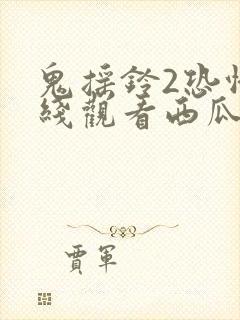 鬼摇铃2恐怖
綫觀看西瓜
賈軍